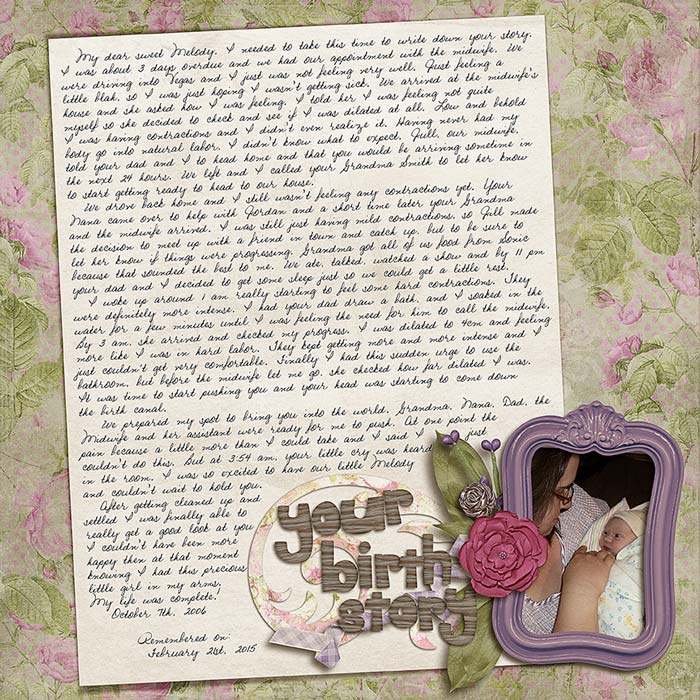 My dear sweet Melody, I needed to take this time to write down your story.
I was about 3 days overdue and we had our appointment with the midwife. We
were driving into Vegas and I just was not feeling very well. Just feeling a
little blah, so I was just hoping I wasn't getting sick. We arrived at the midwife's
house and she asked how I was feeling, I told her I was feeling not quite
myself so she decided to check and see if I was dilated at all. Low and behold
I was having contractions and I didn't even realize it. Having never had my
body go into natural labor, I didn't know what to expect. Jull, our midwife,
told your dad and I to head home and that you would be arriving sometime in
the next 24 hours. We left and I called your Grandma Smith to let her know
to start getting ready to head to our house.
We drove back home and I still wasn't feeling any contractions yet. Your
Nana came over to help with Jordan and a short time later your Grandma
and the midwife arrived. I was still just having mild contractions, so Jill made
the decision to meet up with a friend in town and catch up, but to be sure to
let her know if things were progressing. Grandma got all of us food from Sonic
because that sounded the best to me. We ate, talked, watched a show and by 11 pm
your dad and I decided to get some sleep just so we could get a little rest.
I woke up around 1 am really starting to feel some hard contractions. They
were definitely more intense. I had your dad draw a bath, and I soaked in the
water for a few minutes until I was feeling the need for him to call the midwife.
By 3 am, she arrived and checked my progress. I was dilated to 4cm and feeling
more like I was in hard labor. They kept getting more and more intense and I
just couldn't get very comfortable. Finally I had this sudden urge to use the
bathroom, but before the midwife let me go, she checked how far dilated I was.
It was time to start pushing you and your head was starting to come down
the birth canal.
We prepared my spot to bring you into the world. Grandma, Nana, Dad, the
Midwife and her assistant were ready for me to push. At one point the
pain because a little more than I could take and I said I just
couldn't do this. But at 3:54 am, your little cry was heard
in the room. I was so excited to have our little Melody
and couldn't wait to hold you.
After getting cleaned up and
settled I was finally able to
really get a good look at you
I couldn't have been more
happy then at that moment
knowing I had this precious
little girl in my arms.
My life was complete!
October 7th, 2006
Remembered on:
February 21st, 2015
your
birth
story